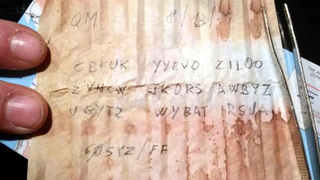 QM 8/8/
CBFUK YYEVO ZILOO
ZVNCW JKORS AWBYZ
UGYTZ WYBAT RSU
/FF